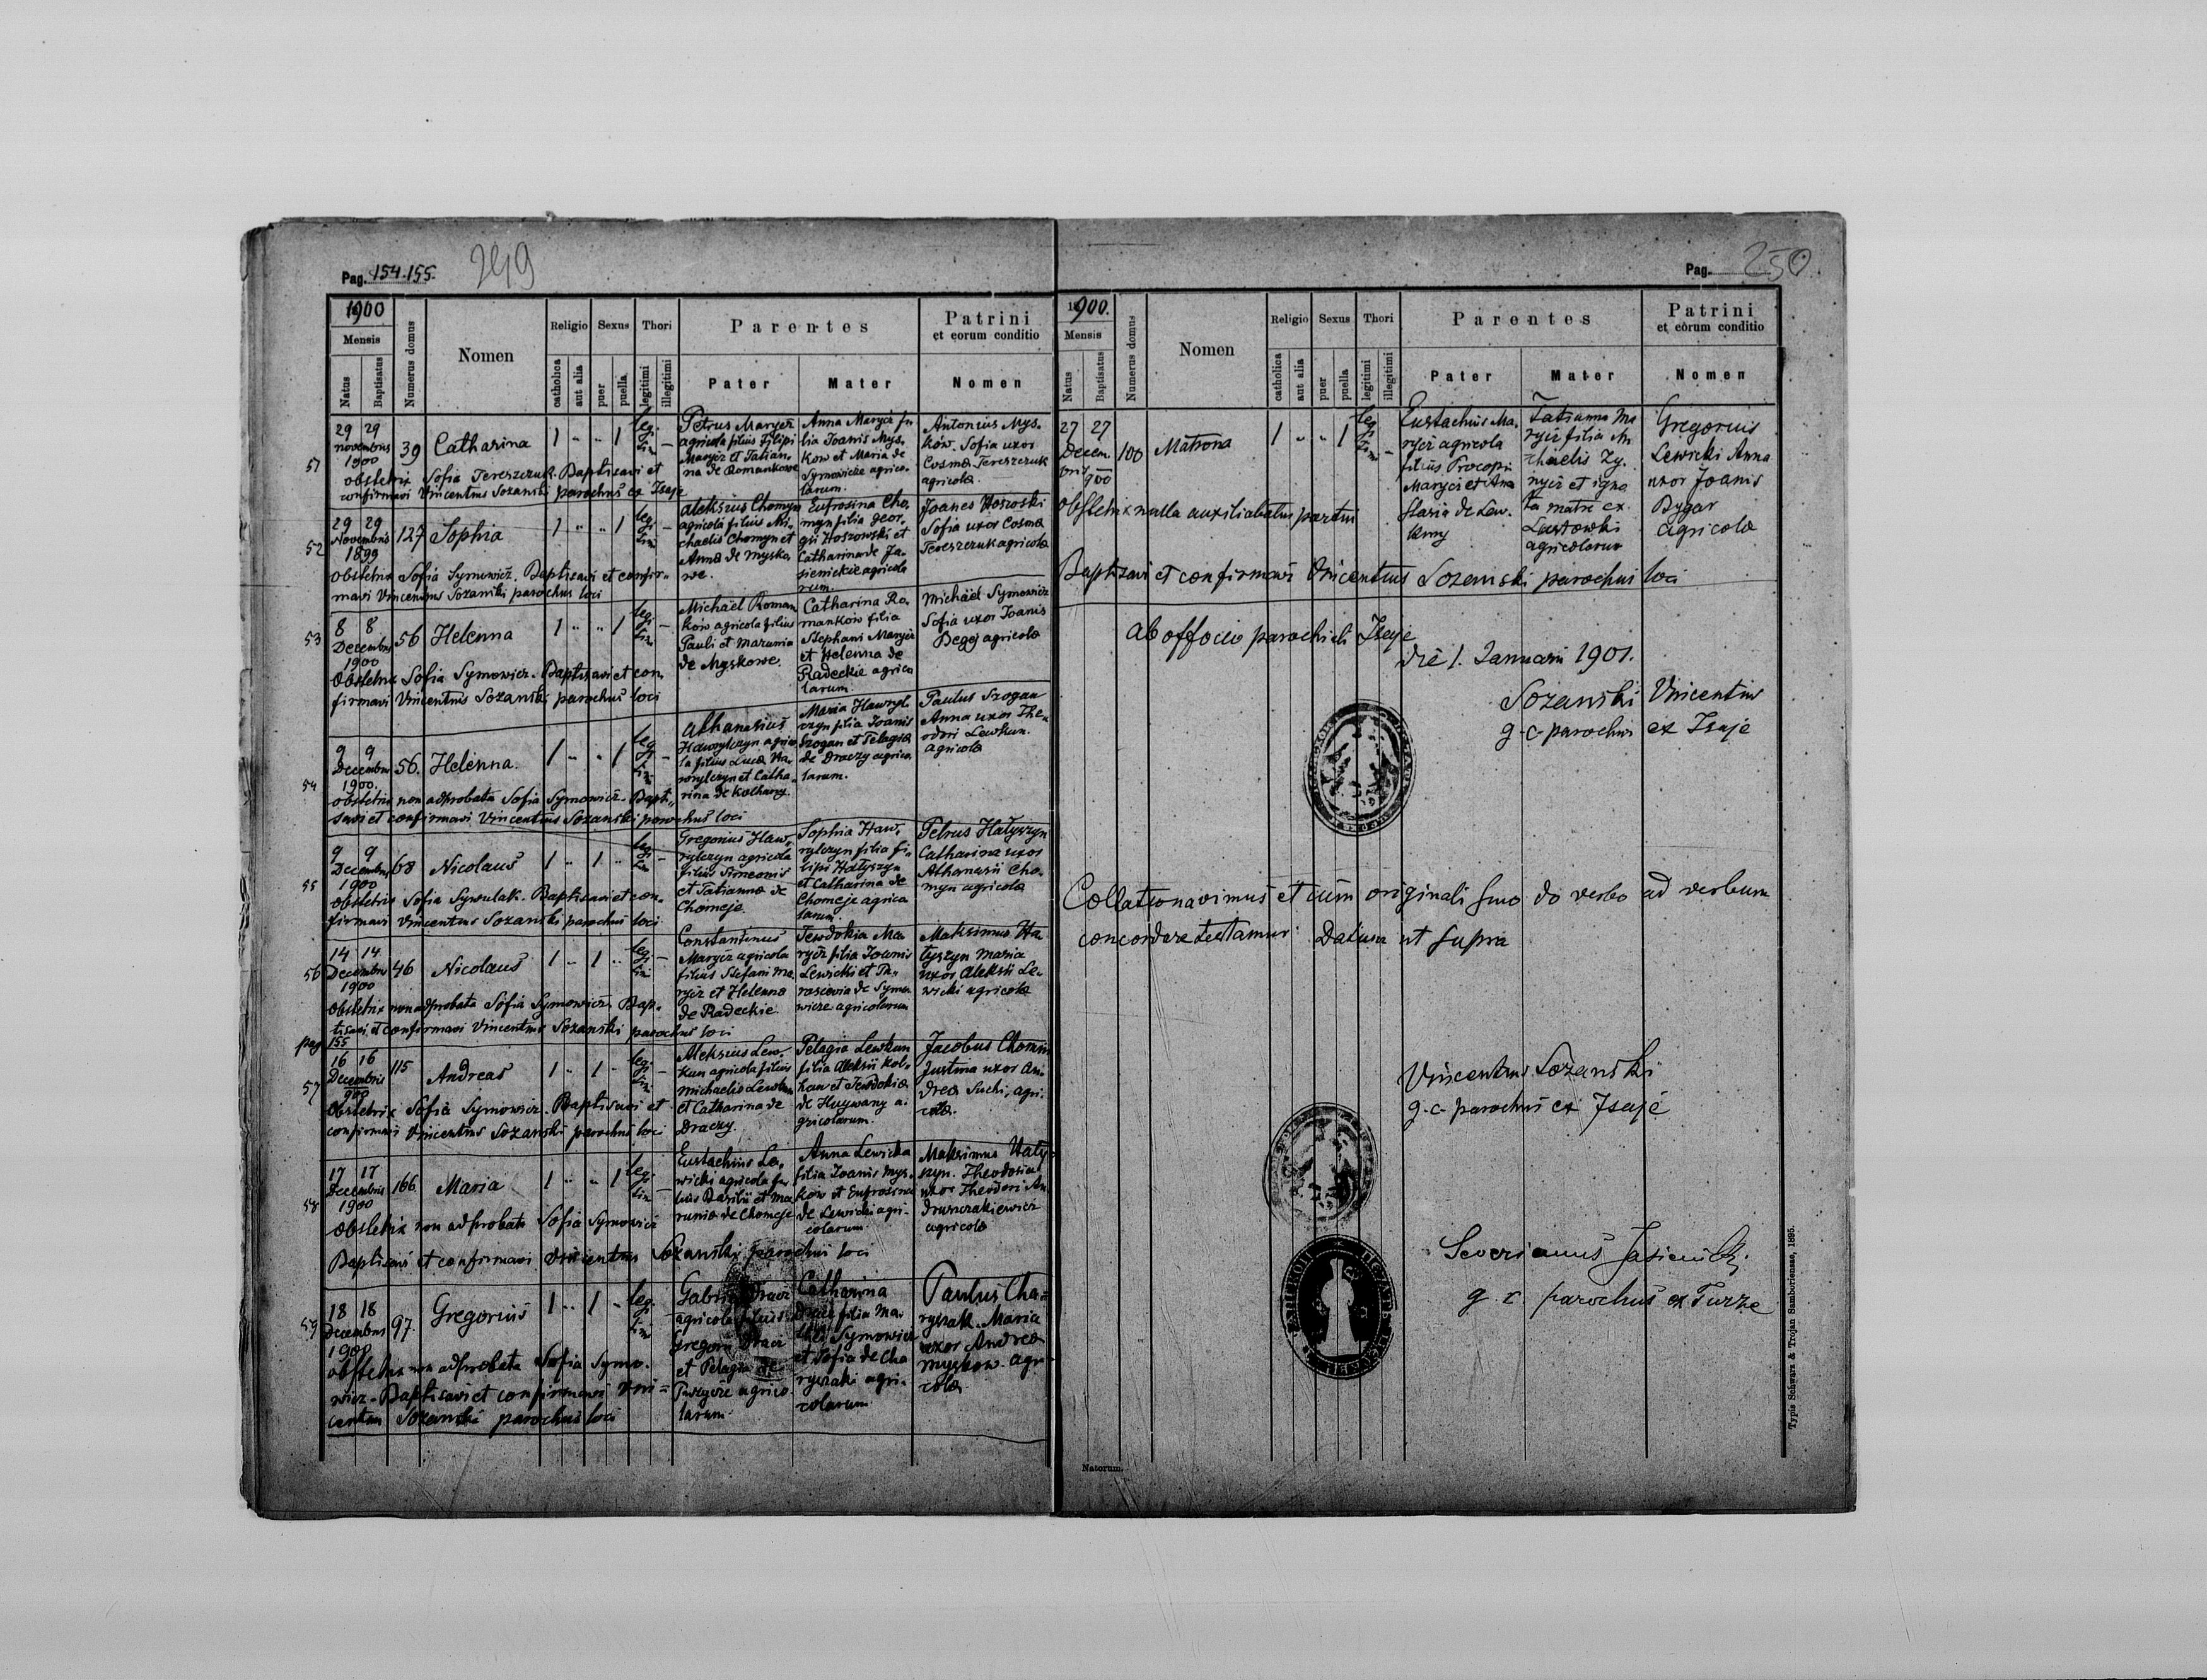 Pag. 154.155.
249
1900
Mensis
Natus
Baptisatus
Numerus domus
Nomen
Religio
catholica
aut alia
Sexus
puer
puella
Thori
legitimi
illegitimi
Parentes
Pater
Mater
Patrini
et eorum conditio
Nomen
51
29 29
novembris
1900
39
Catharina
1 " " 1
legi
tim
Petrus Marycz
agricola filius Filipi
Marycz et Tatian-
na de Romankowe
Anna Marycz fi
lia Joanis Mys-
kow et Maria de
Symowicze agrico-
larum.
Antonius Mys-
ków. Sofia uxor
Cosma Tereszczuk
agricola.
obstetrix Sofia Tereszczuk. Baptisavi et
confirmavi Vincentius Sozanski parochus ex Isaje
52
29 29
Novembris
1899
127
Sophia
1 " " 1
legi
tim
Aleksius Chomyn
agricola filius Mi-
chaelis Chomyn et
Anna de Mysko
we.
Eufrosina Cho-
myn filia Geor-
gii Hoszowski et
Catharina de Ja-
sienickie agricola
rum.
Joanes Hoszoski
Sofia uxor Cosma
Tereszczuk agricola
obstetrix Sofia Symowicz. Baptisavi et confir-
mavi Vincentius Sozanski parochus loci
53
8 8
Decembris
1900
56
Helenna
1 " " 1
legi
tim
Michael Roman
ków agricola filius
Pauli et Marunia
de Myskowe.
Catharina Ro-
mankow filia
Stephani Marycz
et Helenna de
Radeckie agrico
larum.
Michael Symowicz
Sofia uxor Joanis
Degej agricola
Obstetrix Sofia Symowicz. Baptisavi et con-
firmavi Vincentius Sozanski parochus loci
54
9 9
Decembris
1900.
56.
Helenna.
1 " " 1
legi
tim
Athanasius
Hawrylczyn agrico
la filius Luca Ha-
wrylczyn et Catha-
rina de Kolhany.
Maria Hawryl-
czyn filia Joanis
Szogan et Pelagia
de Draczy agrico-
larum.
Paulus Szogan
Anna uxor The-
odori Lewkun.
agricola
obstetrix non adprobata Sofia Symowicz. Bapti-
savi et confirmavi Vincentius Sozanski parochus loci
55
9 9
Decembris
1900
68
Nicolaus
1 " 1 "
legi
tim
Gregorius Haw-
rylczyn agricola
filius Simeonis
et Tatianna de
Chomeje.
Sophia Haw-
rylczyn filia Fi-
lipi Hałyszyn
et Catharina de
Chomeje agrico
larum.
Petrus Hałyszyn
Catharina uxor
Athanasii Cho-
myn agricola
obstetrix Sofia Baptisavi et con-
firmavi Vincentius Sozanski parochus loci
56
14 14
Decembris
1900
46
Nicolaus
1 " 1 "
legi
tim
Constantinus
Marycz agricola
filius Stefani Ma
rycz et Helenna
de Radeckie
Tewdokia Ma
rycz filia Joanis
Lewicki et
de Symo
wicze agricolarum
Maksimus Ha
łyszyn Maria
uxor Aleksii Le-
wicki agricola
obstetrix non adprobata Sofia Symowicz. Bap-
tisavi et confirmavi Vincentius Sozanski parochus loci
pag 155
57
16 16
Decembris
900
115
Andreas
1 " 1 "
legi
tim
Aleksius Lew-
kun agricola filius
Michaelis Lewkun
et Catharina de
Draczy.
Pelagia Lewkun
filia Aleksii Kol-
han et Tewdokia
de Huywany a-
gricolarum.
Jacobus Chomin
Justina uxor An-
drea Suchi, agri-
cola.
Obstetrix Sofia Symowicz. Baptisavi et
confirmavi Vincentius Sozanski parochus loci
58
17 17
Decembris
1900
166.
Maria
1 " " 1
legi
tim
Eustachius Le-
wicki agricola fi
lius Basilii et Ma
runia de Chomeje
Anna Lewicka
filia Joanis Mys-
ków et Eufrosina
de Lewicki agri-
colarum.
Maksimus Hały
szyn. Theodosia
uxor Theodori An
druszakiewicz
agricola
Obstetrix non adprobata Sofia Symowicz
Baptisavi et confirmavi Vincentius Sozanski parochus loci
59
18 18
Decembris
1900
97.
Gregorius
1 " 1 "
legi
tim
Gabriel Dracz
agricola filius
Gregorii Dracz
et Pelagia de
Puszycze agrico
larum.
Catharina
Dracz filia Ma-
thei Symowicz
et Sofia de Cha
ryszaki agri-
colarum
Paulus Cha-
ryszak. Maria
uxor Andrea
Myskow. agri
cola
obstetrix non adprobata Sofia Symo-
wicz. Baptisavi et confirmavi Vin=
centius Sozanski parochus loci
Pag. 250
1900.
Mensis
Natus
Baptisatus
Numerus domus
Nomen
Religio
catholica
aut alia
Sexus
puer
puella
Thori
legitimi
illegitimi
Parentes
Pater
Mater
Patrini
et eorum conditio
Nomen
27 27
Decem-
bris
900
100
Matrona
1 " " 1
legi
tim
Eustachius Ma-
rycz agricola
filius Procopi
Marycz et Ana
stasia de Lew-
kuny
Tatianna Ma
rycz filia Mi
chaelis Zy-
nycz et igno
ta matre ex
Lastowki
agricolarum
Gregorius
Lewicki Anna
uxor Joanis
Bygar
agricola
Obstetrix nulla auxiliabatur partui
Baptisavi et confirmavi Vincentius Sozanski parochus loci
Ab officio parochiali Isaje
die 1. Januarii 1901.
Sozanski Vincentius
g-c parochus ex Isaje
Collationavimus et cum originali suo do verbo ad verbum
concordare testamur. Datum ut supra
Vincentius Sozanski
g-c- parochus ex Isaje
Severianus Jasienicki
g. c. parochus ex Turze
Natorum.
Typis Schwarz & Trojan Samboriensae, 1895.